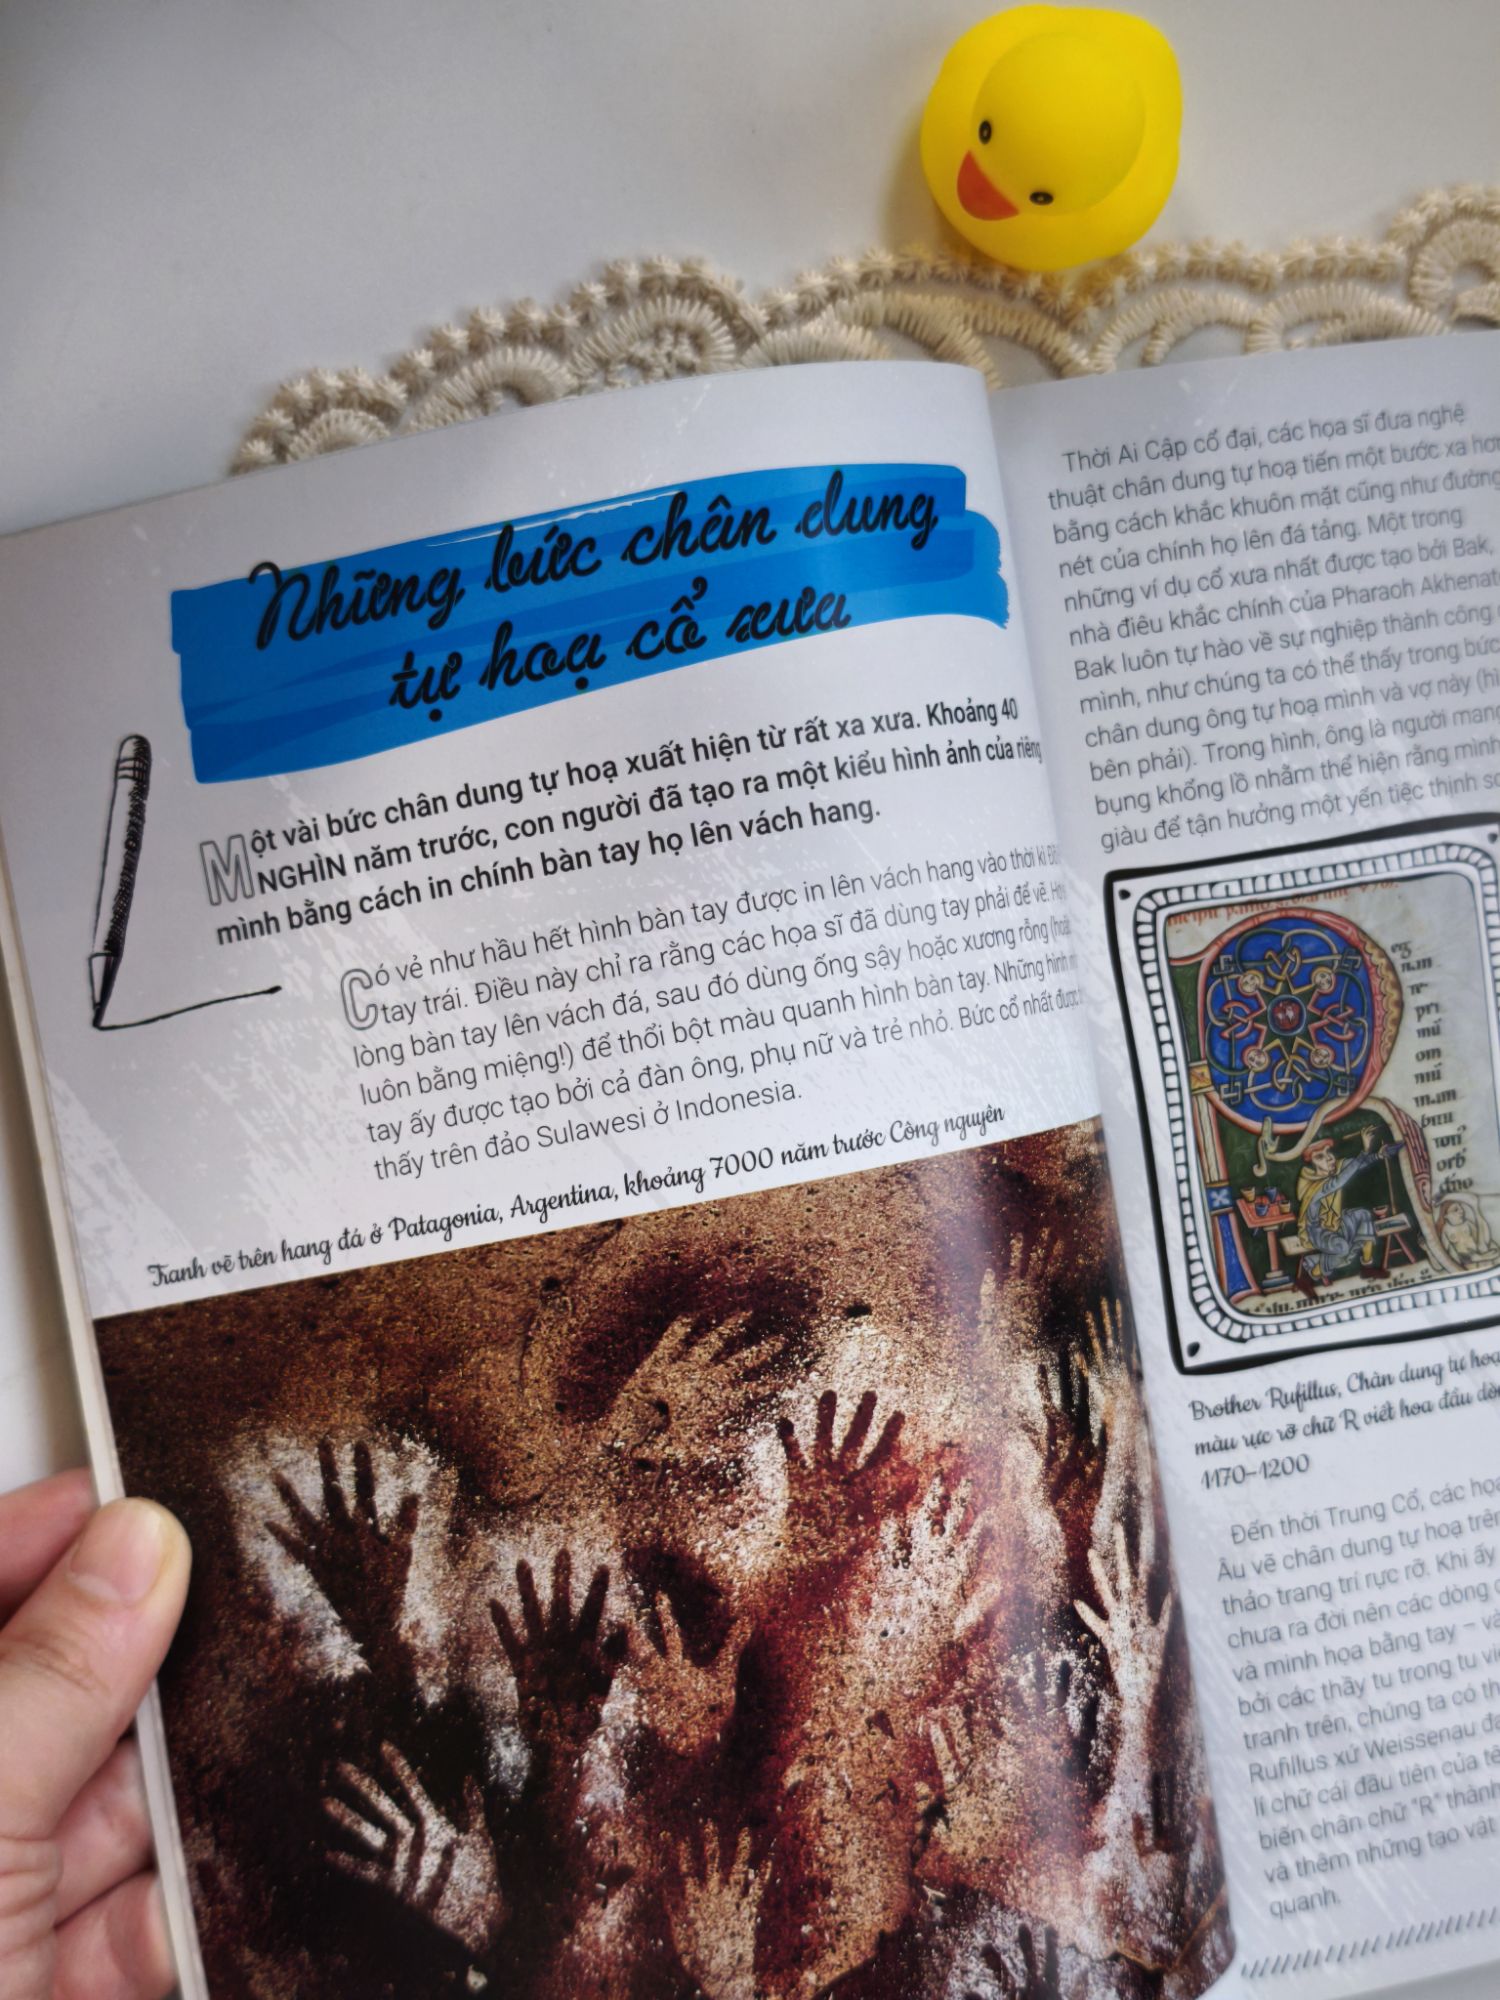 Những bức chân dung
tự hoạ cổ xưa
Một vài bức chân dung tự hoạ xuất hiện từ rất xa xưa. Khoảng 40
NGHÌN năm trước, con người đã tạo ra một kiểu hình ảnh của riêng
mình bằng cách in chính bàn tay họ lên vách hang.
Có vẻ như hầu hết hình bàn tay được in lên vách hang vào thời kì
tay trái. Điều này chỉ ra rằng các họa sĩ đã dùng tay phải để vẽ.
lòng bàn tay lên vách đá, sau đó dùng ống sậy hoặc xương rỗng
luôn bằng miệng!) để thổi bột màu quanh hình bàn tay. Những hình
tay ấy được tạo bởi cả đàn ông, phụ nữ và trẻ nhỏ. Bức cổ nhất được
thấy trên đảo Sulawesi ở Indonesia.
Tranh vẽ trên hang đá ở Patagonia, Argentina, khoảng 7000 năm trước Công nguyên
Thời Ai Cập cổ đại, các họa sĩ đưa nghệ
thuật chân dung tự hoạ tiến một bước xa hơn
bằng cách khắc khuôn mặt cũng như đường
nét của chính họ lên đá tảng. Một trong
những ví dụ cổ xưa nhất được tạo bởi Bak,
nhà điêu khắc chính của Pharaoh
Bak luôn tự hào về sự nghiệp thành công
mình, như chúng ta có thể thấy trong bức
chân dung ông tự hoạ mình và vợ này
bên phải). Trong hình, ông là người mang
bụng khổng lồ nhằm thể hiện rằng mình
giàu để tận hưởng một yến tiệc thịnh
eg
pri
om
orb
Brother Rufillus, Chân dung tự hoạ
màu rực rỡ chữ R viết hoa đầu
1170–1200
Đến thời Trung Cổ, các
Âu vẽ chân dung tự hoạ trên
thảo trang trí rực rỡ. Khi ấy
chưa ra đời nên các dòng
và minh họa bằng tay –
bởi các thầy tu trong tu
tranh trên, chúng ta có
Rufillus xứ Weissenau
lí chữ cái đầu tiên của
biến chân chữ "R" thành
và thêm những tạo vật
quanh.